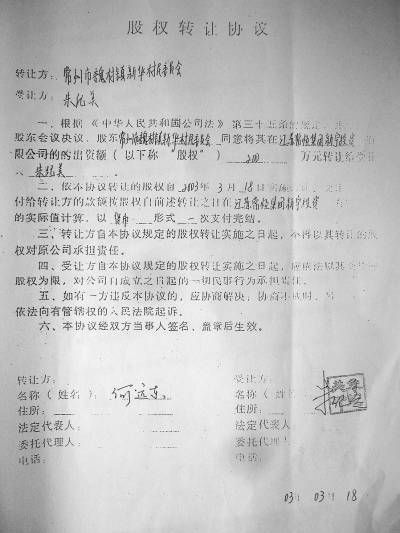 股权转让协议
转让方：常州市魏村镇新华村村民委员会
受让方：朱
一、根据《中华人民共和国公司法》第三十五条的规定
股东会决议，股东常州市魏村镇新华村村民委员会同意将其在江苏常恒集团
限公司的的出资额（以下称“股权”）200万元转让给受让
朱
二、依本协议转让的股权自2003年3月18日实施转让
付给转让方的款额按股权自前述转让之日在江苏常恒集团
的实际值计算，以货币形式一次支付完结。
三、转让方自本协议规定的股权转让实施之日起，不得以其转让的股
权对原公司承担责任。
四、受让方自本协议规定的股权转让实施之日起，应依法以其
股权为限，对公司自成立之日起的一切民事行为承担责任。
五、如有一方违反本协议的，应协商解决；协商不成时，
依法向有管辖权的人民法院起诉。
六、本协议经双方当事人签名、盖章后生效。
转让方：
名称（姓名）：何远东
住所：
法定代表人：
委托代理人：
电话：
受让方：
名称（姓名）：
住所：
法定代表人
委托代理人
电话：
03年03月18